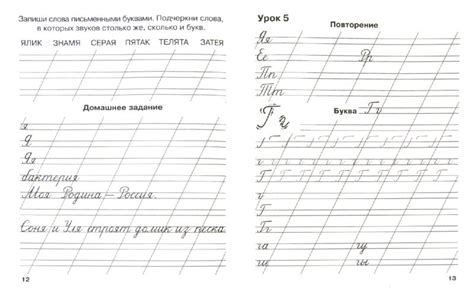 Запиши слова письменными буквами. Подчеркни слова,
в которых звуков столько же, сколько и букв.
ЯЛИК ЗНАМЯ СЕРАЯ ПЯТАК ТЕЛЯТА ЗАТЕЯ
Домашнее задание
я
Я
Яя
бактерия
Моя Родина — Россия.
Соня и Уля строят домик из песка.
12
Урок 5
Повторение
Яя
Ее Рр
Пп
Тт
Буква Гг
г
Г
Гг
га гу
ги гы
13